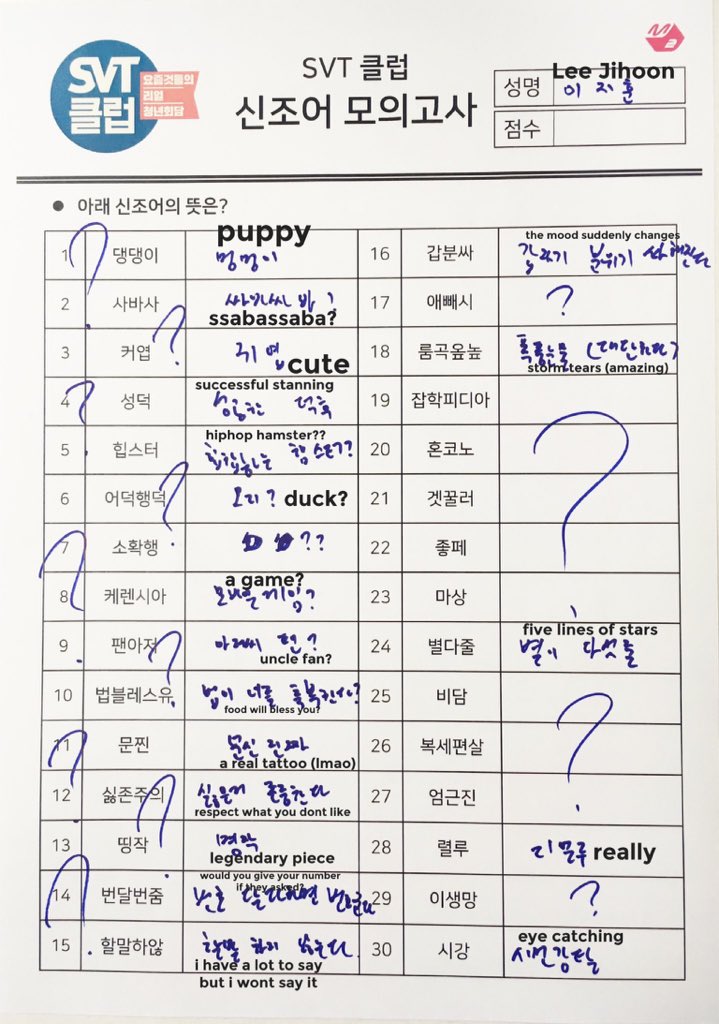 SVT
클럽
요즘것들의
리얼
청년회담
SVT 클럽
신조어 모의고사
M2
Lee Jihoon
성명 이지훈
점수
● 아래 신조어의 뜻은?
puppy
1 댕댕이 멍멍이
2 사바사 싸바싸바?
ssabassaba?
3 커엽 귀엽
cute
successful stanning
4 성덕 성공한 덕후
hiphop hamster??
5 힙스터 힙합하는 햄스터??
6 어덕행덕 오리? duck?
7 소확행 ??
a game?
8 케렌시아 모바일게임?
9 팬아저 아저씨 팬?
uncle fan?
10 법블레스유 법이 너를 축복한다?
food will bless you?
11 문찐 문신 진짜
a real tattoo (lmao)
12 싫존주의 싫은거 존중한다
respect what you dont like
13 띵작 명작
legendary piece
would you give your number
if they asked?
14 번달번줌 번호 달라하면 번호줌
15 할말하않 할말 하지 않는다.
i have a lot to say
but i wont say it
the mood suddenly changes
16 갑분싸 갑자기 분위기 싸해진다
17 애빼시 ?
18 룸곡옾높 폭풍눈물 (대단하다)
storm tears (amazing)
19 잡학피디아
20 혼코노 ?
21 겟꿀러
22 좋페
23 마상
five lines of stars
24 별다줄 별이 다섯줄
25 비담
26 복세편살 ?
27 엄근진
28 렬루 리얼루 really
29 이생망 ?
eye catching
30 시강 시선강탈